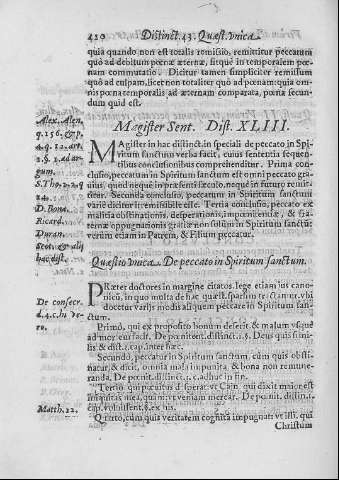 420 Distinct. 43. Quæst. Vnica
quia quando non est totalis remisio, remittitur peccatum
quo ad debitum pœnæ æternæ, sitque in temporalem pœ-
nam commutatio. Dicitur tamen simpliciter remissum
quo ad culpam, licet non totaliter quo ad pœnam: quia om-
nis pœna temporalis ad æternam comparata, pœna secun-
dum quid est.
Magister Sent. Dist. XLIII.
Alex. Alen.
q. 156. &
4. q. 12. art.
1. §. 2. ad ar-
gum.
S. Tho. 2. 2. q
14.
D. Bona.
Ricard.
Duran.
Scot. & alij
hac dist.
MAgister in hac distinct. in speciali de peccato in Spi-
ritum sanctum verba facit, cuius sententia sequen-
tibus conclusionibus comprehenditur. Prima con-
clusio, peccatum in Spiritum sanctum est omni peccato gra-
uius, quod neque in præsenti sæculo, neque in futuro remit-
titur. Secunda conclusio, peccatum in Spiritum sanctum
varie dicitur irremissibile esse. Tertia conclusio, peccato ex
malitia obstinationis, desperationis, impœnitentiæ, & fra-
ternæ oppugnationis gratiæ non solùm in Spiritum sanctū
verùm etiam in Patrem, & Filium peccatur.
Quæstio vnica. De peccato in Spiritum sanctum.
De consecr.
d. 4. c. in ve-
ro.
PRæter doctores in margine citatos, lege etiam ius cano-
nicū, in quo multa de hac quæst. sparsim tractantur, vbi
docetur varijs modis aliquem peccare in Spiritum san-
ctum.
Primò, qui ex proposito bonum deserit, & malum vsque
ad mortem facit. De pœnitent. distinct. 1. §. Deus quis simi-
lis & dist. 2. cap. inter hæc.
Secundo, peccatur in Spiritum sanctum, cùm quis obsti-
natur, & dicit, omnia mala impunita, & bona non remune-
randa. De pœnit. distinct. 2. c. adhuc in fin.
Tertio qui penitus desperat: vt Cain qui dixit maior est
iniquitas mea, quam vt veniam mercar. De pœnit. distinct. 1.
cap. voluissent. §. ex his.
Matth. 12.
Quarto, cùm quis veritatem cognitā impugnat: vt illi, qui
Christum